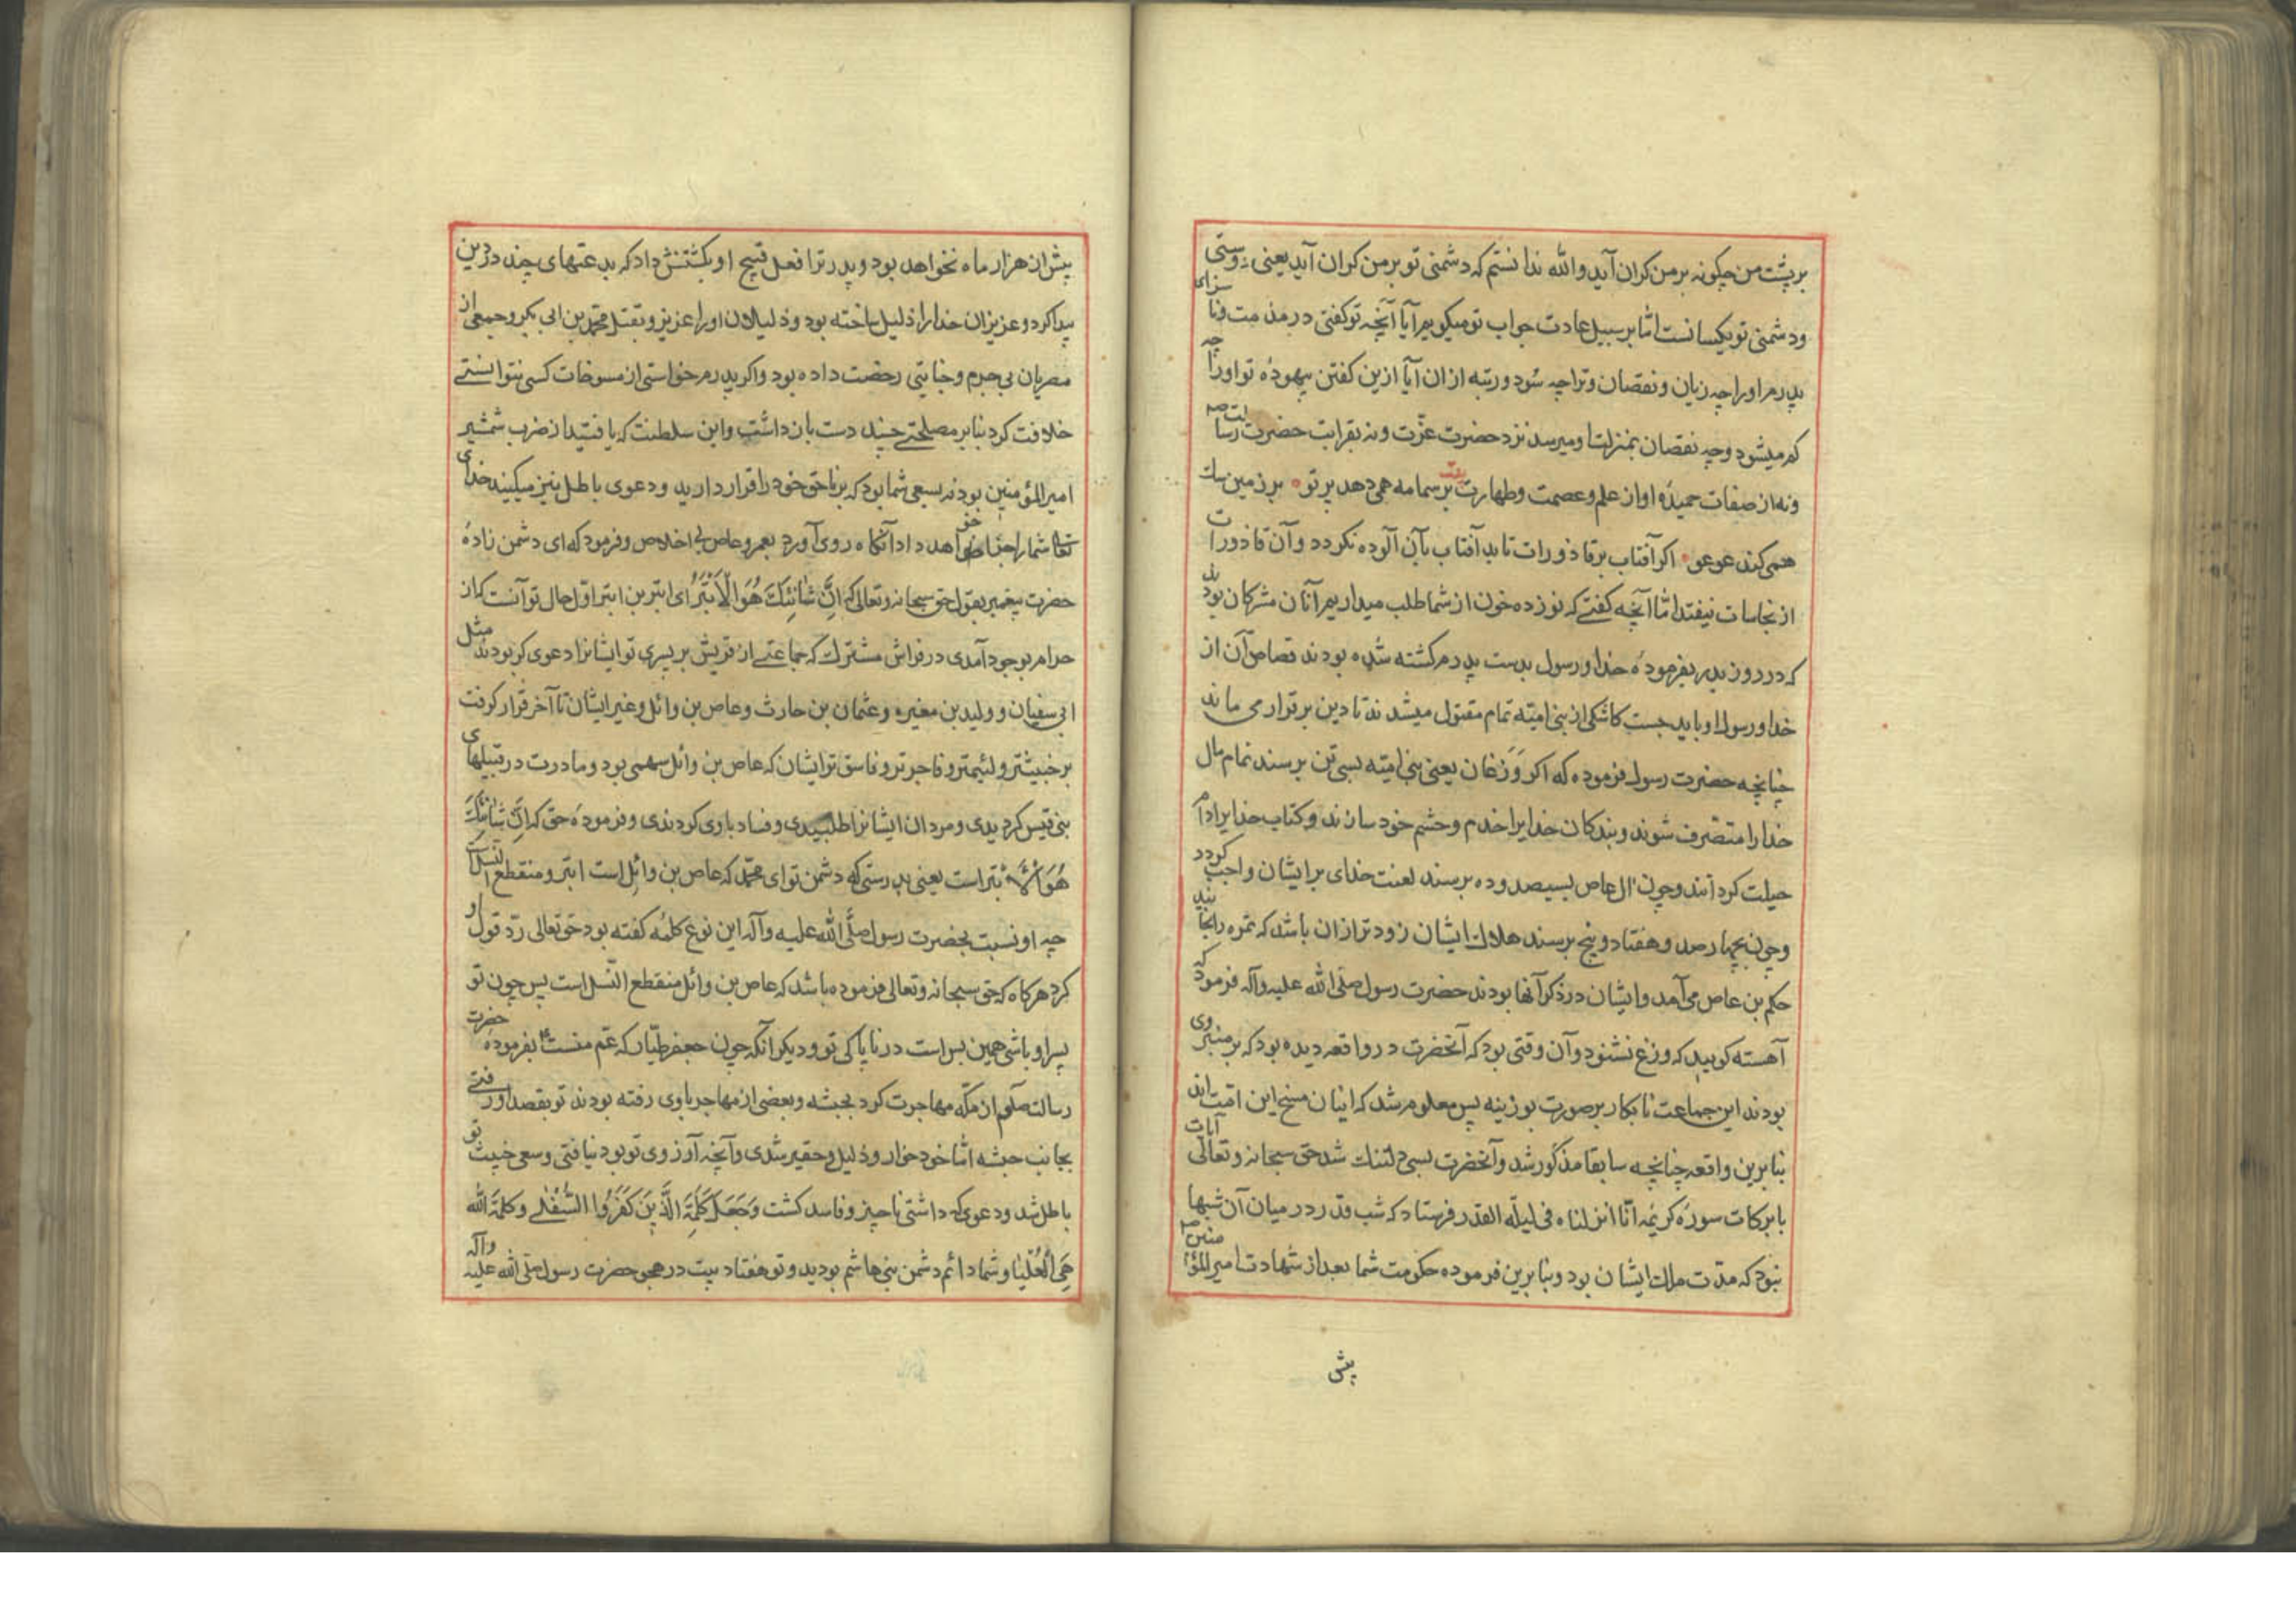 بر پشت من چکونه بر من کران آید والله ندانستم که دشمنی تو بر من کران آید یعنی دوستی
ودشمنی تو یکسانست امّا بر سبیل عادت جواب تو میکویم آیا آنچه تو کفتی در مذمت وناسزای
پدرم اورا چه زیان ونقصان وترا چه سود ورتبه از ان آیا ازین کفتن بیهودهٔ تو اورا چه
کم میشود وچه نقصان بمنزلت او میرسد نزد حضرت عزّت ونه بقرابت حضرت رسالت صم
ونه از صفات حمیدهٔ او از علم وعصمت وطهارت بیت بر سما مه همی دهد پرتو • بر زمین سک
همی کند عوعو • اکر آفتاب بر قاذورات تابد آفتاب بآن آلوده نکردد وآن قاذورات
از نجاسات نیفتد امّا آنچه کفتے که نوزده خون از شما طلب میداریم آنان مشرکان بودند
که در روز بدر بفرمودهٔ خدا ورسول بدست پدرم کشته شده بودند قصاص آن از
خدا ورسول او باید جست کاشکی از بنی امیّه تمام مقتول میشدند تا دین برقرار می ماند
چنانچه حضرت رسول فرموده که اکر وَزَغان یعنی بنی امیّه بسی تن برسند تمام مال
خدا را متصّرف شوند وبندکان خدایرا خدم وحشم خود سازند وکتاب خدایرا دام
حیلت کردانند وچون ال عاص بسیصد وده برسند لعنت خدای بر ایشان واجب کردد
وچون بچهارصد وهفتاد وپنج برسند هلاک ایشان زودتر ازان باشد که تمره
حکم بن عاص می آمد وایشان در ذکر آنها بودند حضرت رسول صلّی الله علیه وآله فرمود که
آهسته کویید که وزغ نشنود وآن وقتی بود که آنحضرت در واقعه دیده بود که بر منبر وی
بودند این جماعت نابکار بر صورت بوزینه پس معلوم شد که اینان مسخ این امّت اند
بنابرین واقعه چنانچه سابقا مذکور شد وآنحضرت بسی دلتنک شد حق سبحانه وتعالی آیات
بابرکات سورهٔ کریمهٔ انّا انزلناه فی لیلة القدر فرستاد که شب قدر در میان آن شبها
نبود که مدّت ملک ایشان بود وبنابرین فرموده حکومت شما بعد از شهادت امیرالمؤمنین
پیش
پیش از هزار ماه نخواهد بود وپدر ترا فعل قبیح او بکشتنش داد که بدعتهای چند در دین
پیدا کرد وعزیزان خدا را ذلیل ساخته بود وذلیلان اورا عزیز وبقتل محمّد بن ابی بکر وجمعی از
مصریان بی جرم وجنایتی رخصت داده بود واکر پدرم خواستی از مسوخات کسی نتوانستے
خلافت کرد بنابر مصلحتے چند دست بان داشت واین سلطنت که یافتید از ضرب شمشیر
امیر المؤمنین بود نه بسعی شما بود که بر ناحق خود را قرار دارید ودعوی باطل نیز میکنید خدای
تعالی شما را جزا خواهد داد آنکاه روی آورد بعمرو عاص بی اخلاص وفرمود که ای دشمن زادهٔ
حضرت پیغمبر بقول حق سبحانه وتعالی که اِنَّ شَانِئَكَ هُوَ الْاَبْتَرُ ای ابتر بن ابتر اوّل حال تو آنست که از
حرام بوجود آمدی در فراش مشترک که جماعتے از قریش بر پسری تو ایشانرا دعوی کر بودند مثل
ابی سفیان وولید بن مغیره وعثمان بن حارث وعاص بن وائل وغیر ایشان تا آخر قرار کرفت
بر خبیثتر ولئیمتر وفاجرتر وفاسق تر ایشان که عاص بن وائل سهمی بود ومادرت در قبیلهای
بنی قیس کردیدی ومردان ایشانرا طلبیدی وفساد باوی کردندی وفرمودهٔ حق که اِنَّ شَانِئَكَ
هُوَ الْاَبْتَر است یعنی بدرستی که دشمن تو ای محمّد که عاص بن وائل است ابتر ومنقطع النّسل است
چه او نسبت بحضرت رسول صلَّی الله علیه وآله این نوع کلمه کفته بود حق تعالی ردّ قول او
کرد هرکاه که حق سبحانه وتعالی فرموده باشد که عاص بن وائل منقطع النّسل است پس چون تو
پسر او باشی همین بس است در ناپاکی تو ودیکر آنکه چون جعفر طیّار که عم منست بفرمودهٔ حضرت
رسالت صلعم از مکّه مهاجرت کرد بحبشه وبعضی از مهاجر باوی رفته بودند تو بقصد او رفتے
بجانب حبشه امّا خود خوار وذلیل وحقیر شدی وآنچه آرزوی تو بود نیافتی وسعی خبیث تو
باطل شد ودعوی که داشتی ناچیز وفاسد کشت وَجَعَلَ كَلِمَةَ الَّذِينَ كَفَرُوا السُّفْلٰی وكلمةُ الله
هِيَ الْعُلْيَا وشما دائم دشمن بنی هاشم بودید وتو هفتاد بیت در هجو حضرت رسول صلی الله علیه وآله